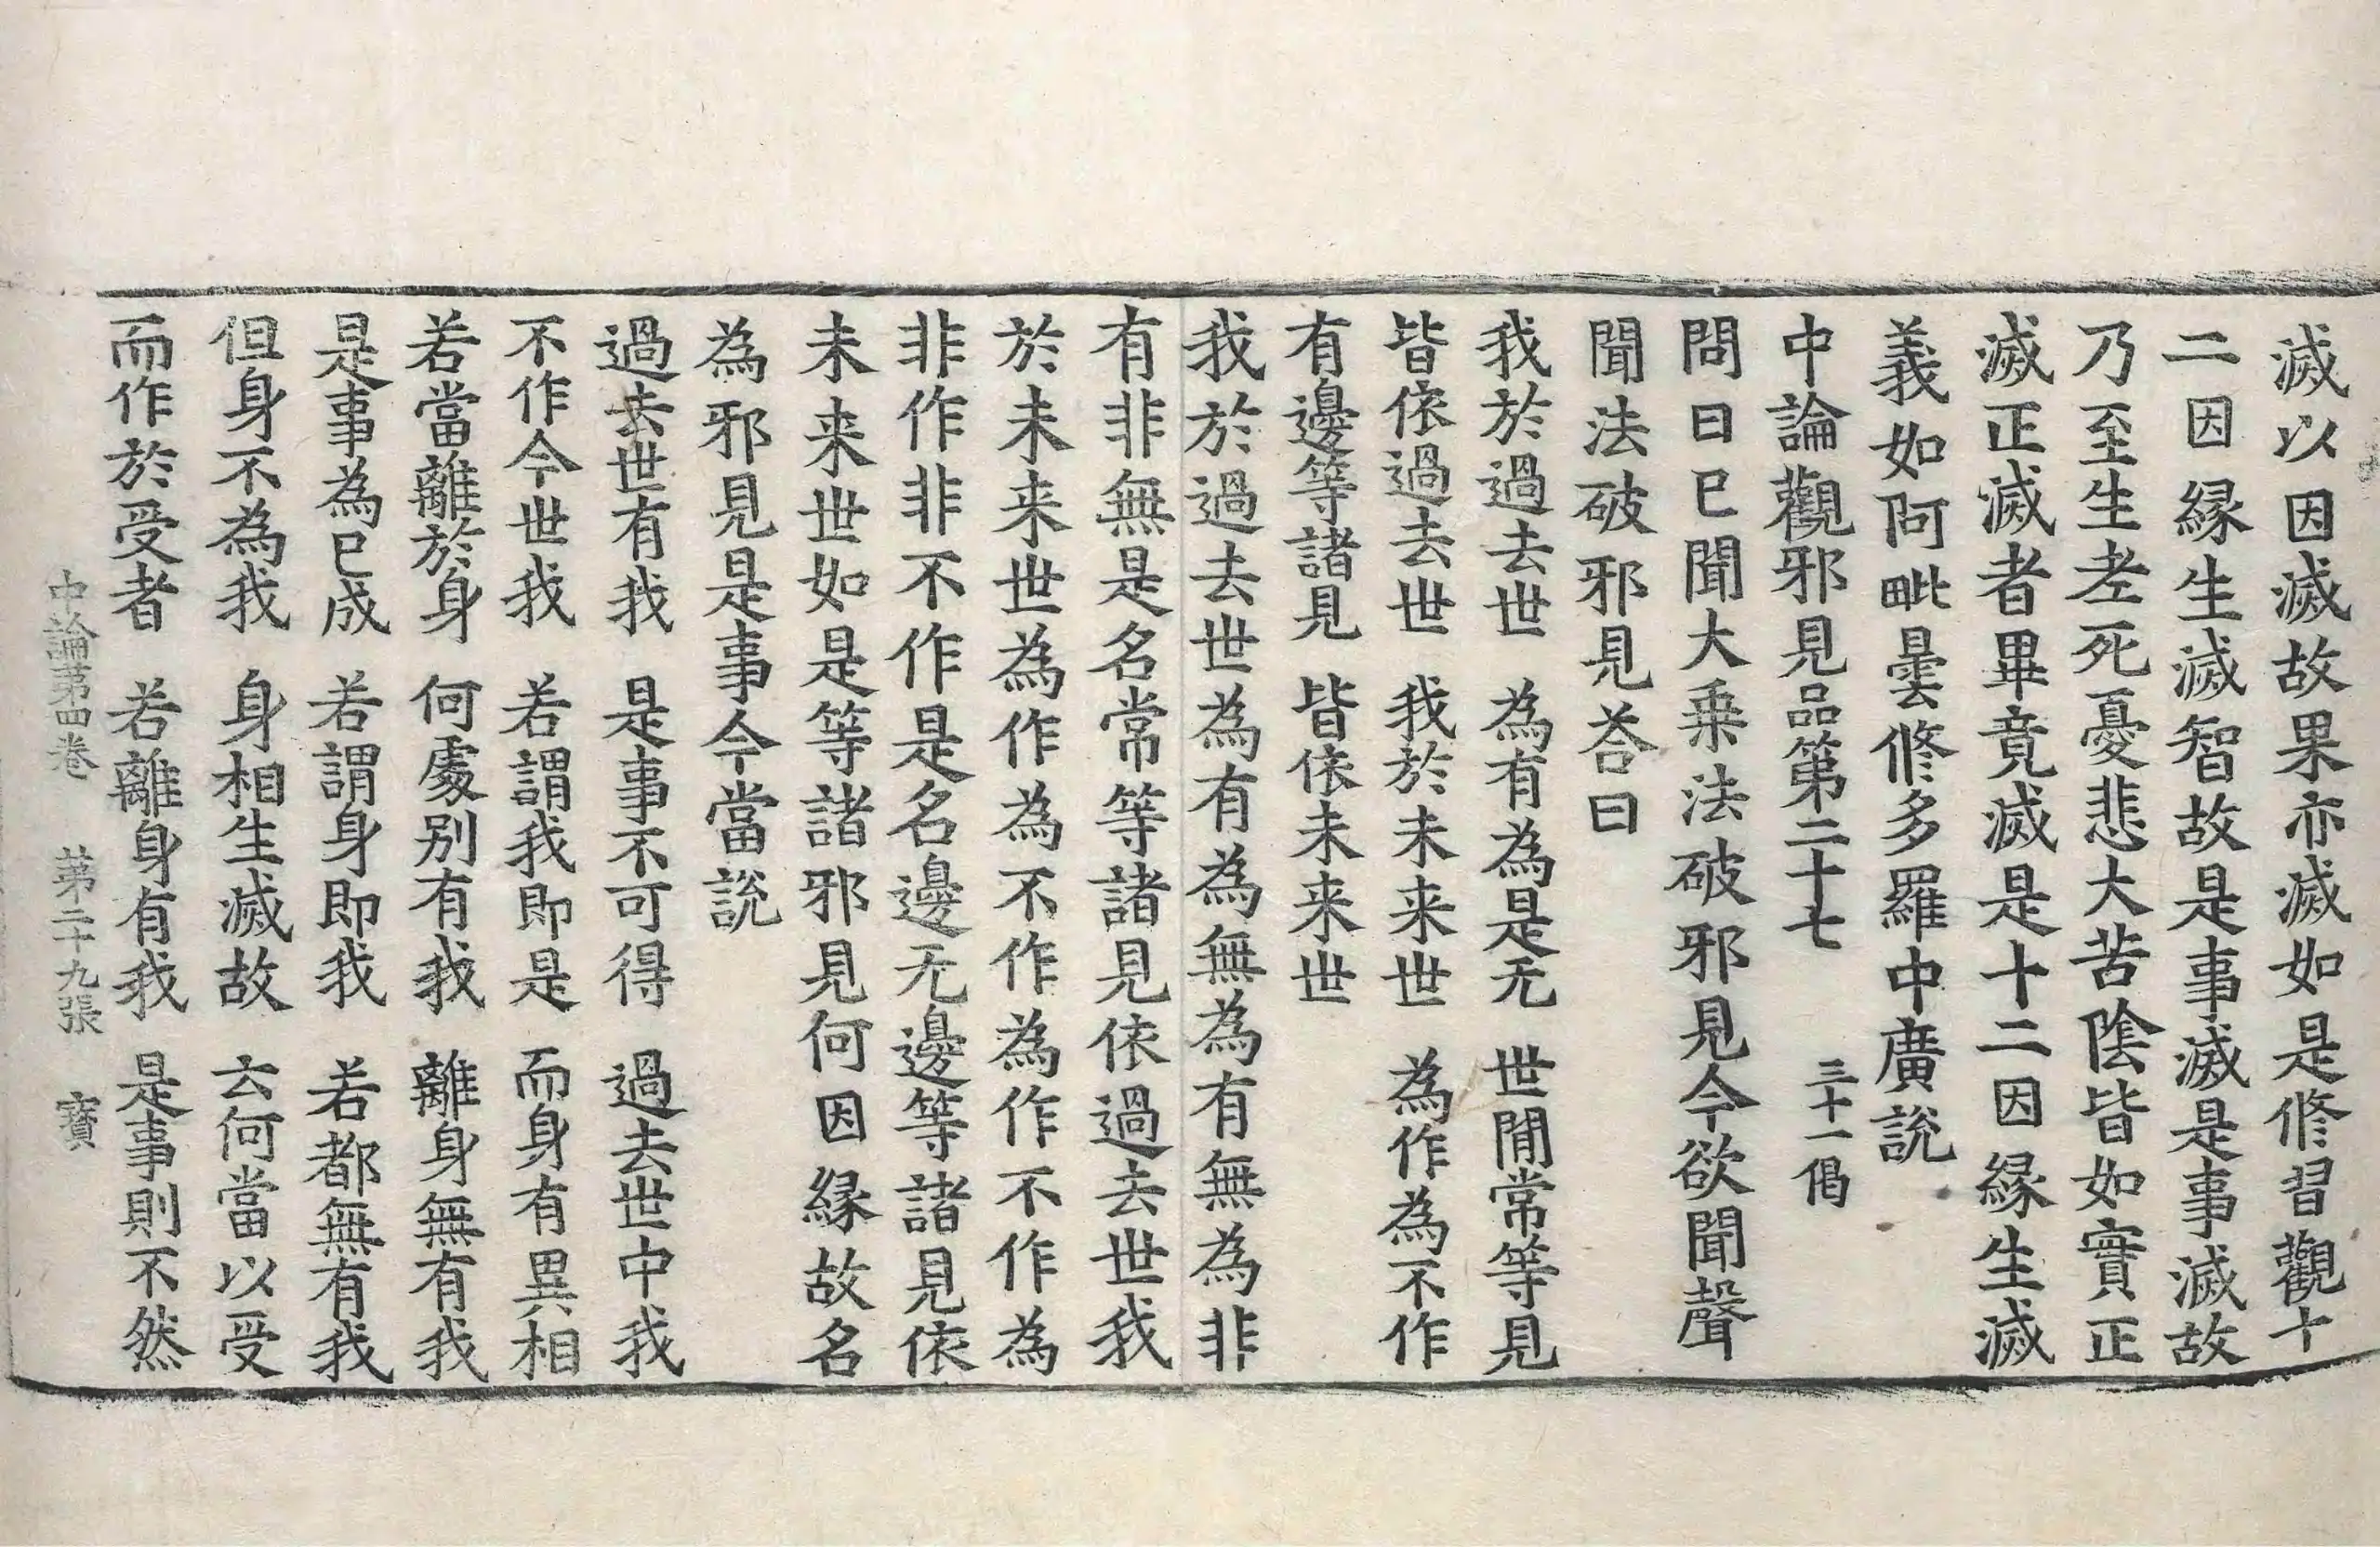 滅以因滅故果亦滅如是修習觀十
二因緣生滅智故是事滅是事滅故
乃至生老死憂悲大苦陰皆如實正
滅正滅者畢竟滅是十二因緣生滅
義如阿毗曇修多羅中廣說
中論觀邪見品第二十七 三十一偈
問曰已聞大乗法破邪見今欲聞聲
聞法破邪見荅曰
我於過去世 為有為是无 世間常等見
皆依過去世 我於未来世 為作為不作
有邊等諸見 皆依未来世
我於過去世為有為無為有無為非
有非無是名常等諸見依過去世我
於未来世為作為不作為作不作為
非作非不作是名邊无邊等諸見依
未来世如是等諸邪見何因緣故名
為邪見是事今當說
過去世有我 是事不可得 過去世中我
不作今世我 若謂我即是 而身有異相
若當離於身 何處別有我 離身無有我
是事為已成 若謂身即我 若都無有我
但身不為我 身相生滅故 云何當以受
而作於受者 若離身有我 是事則不然
中論第四卷 第二十九張 寶